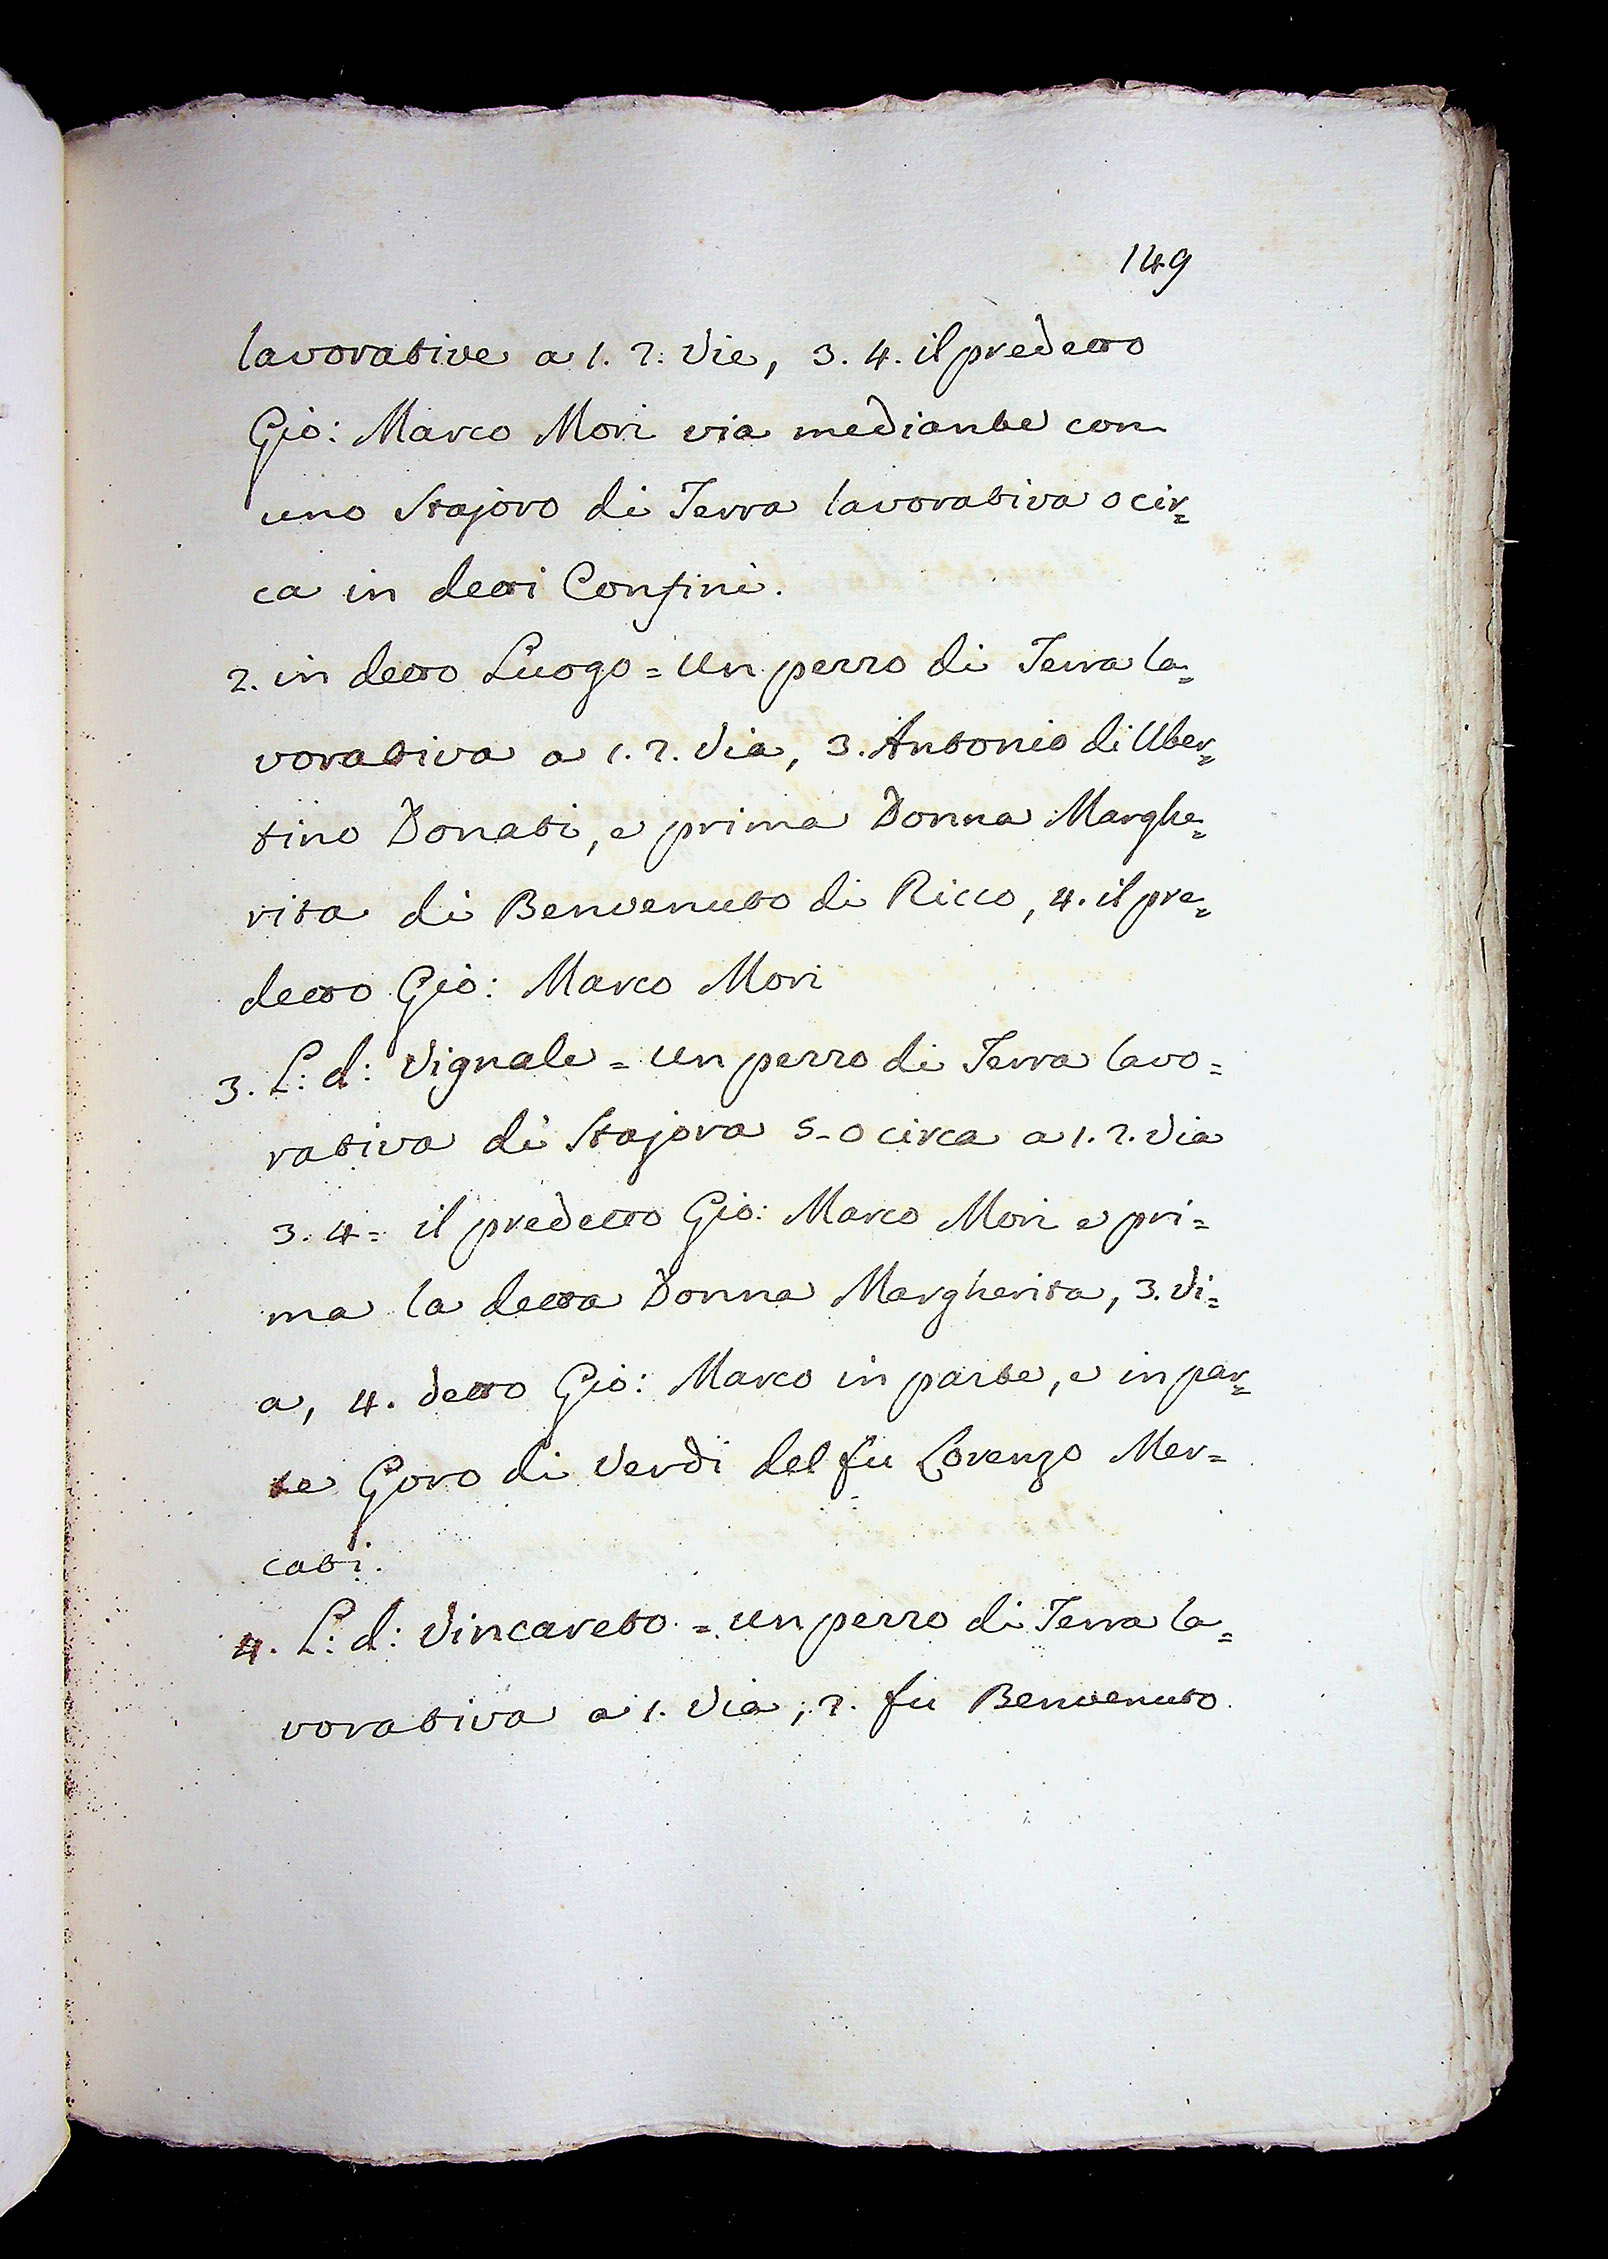 149
lavorative a 1. 2. Vie, 3. 4. il predetto
Gio: Marco Mori via mediante con
uno Stajoro di Terra lavorativa o cir=
ca in detti Confini.
2. in detto Luogo = Un pezzo di Terra la=
vorativa a 1. 2. Via, 3. Antonio di Uber=
tino Donati, e prima Donna Marghe=
rita di Benvenuto di Ricco, 4. il pre=
detto Gio: Marco Mori
3. L: d: Vignale = Un pezzo di Terra lavo=
rativa di Stajora 5 - o circa a 1. 2. Via
3. 4 = il predetto Gio: Marco Mori e pri=
ma la detta Donna Margherita, 3. Vi=
a, 4. detto Gio: Marco in parte, e in par=
te Goro di Verdi del fu Lorenzo Mer=
cati.
4. L: d: Vincareto = Un pezzo di Terra la=
vorativa a 1. Via, 2. fu Benvenuto